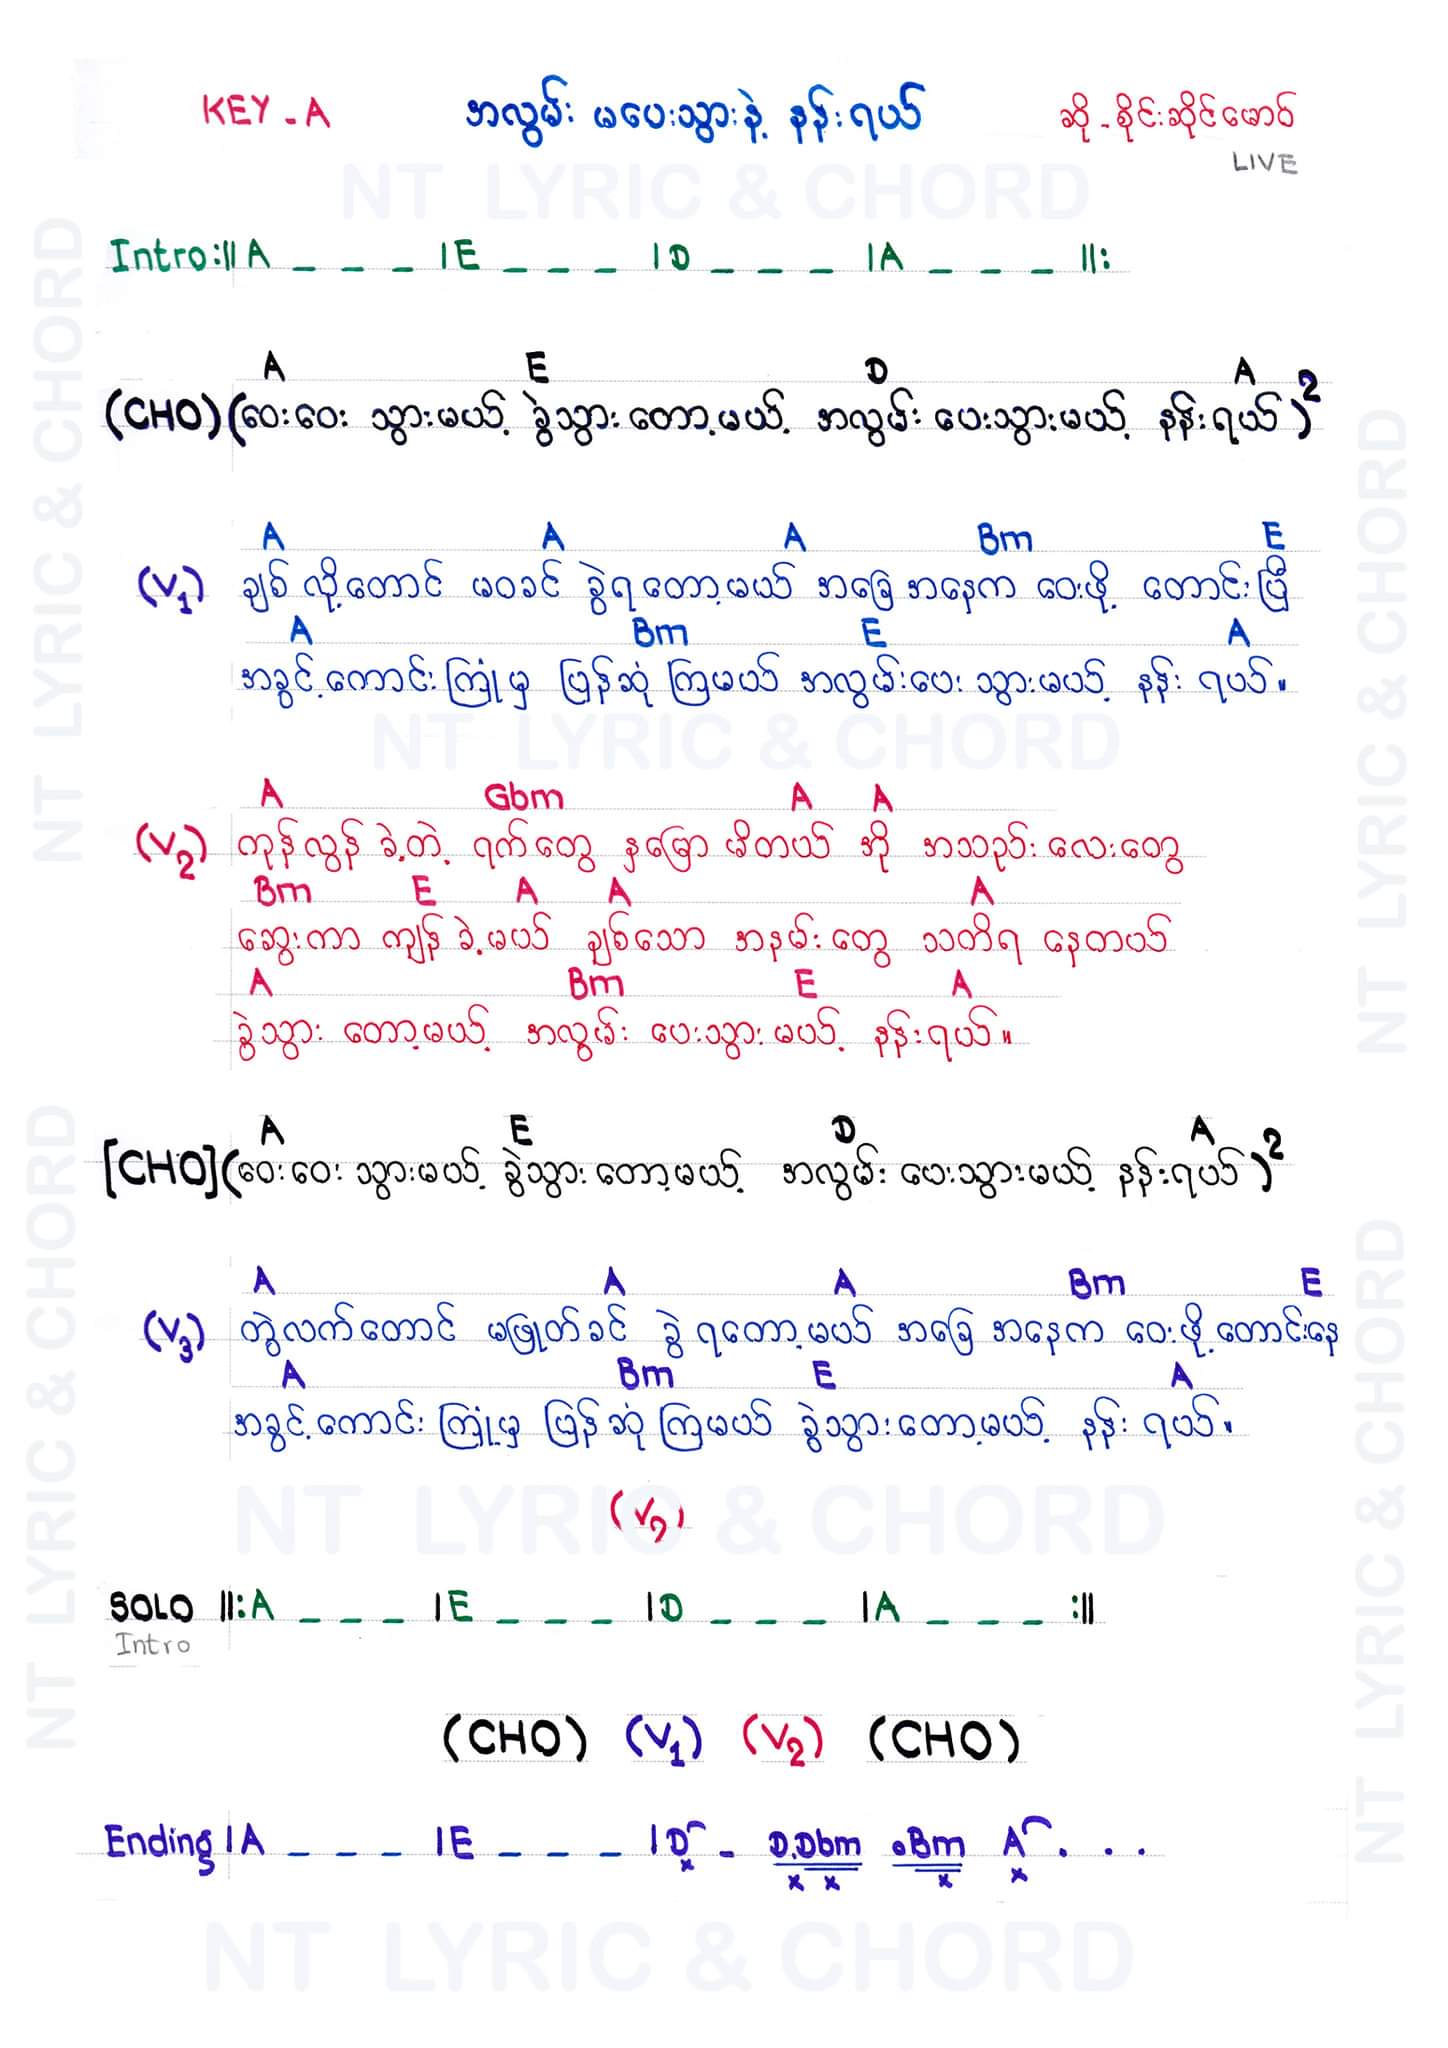 KEY - A အလွမ်း မပေးသွားနဲ့ နန်းရယ် ဆို - စိုင်းဆိုင်မောဝ်
LIVE
NT LYRIC & CHORD
Intro:|| A _ _ _ | E _ _ _ | D _ _ _ | A _ _ _ ||:
A E D A
(CHO) (ဝေးဝေး သွားမယ့် ခွဲသွားတော့မယ့် အလွမ်း ပေးသွားမယ့် နန်းရယ်)2
A A A Bm E
(V1) ချစ် လို့တောင် မဝခင် ခွဲရတော့မယ် အခြေ အနေက ဝေးဖို့ တောင်းပြီ
A Bm E A
အခွင့်ကောင်း ကြုံမှ ပြန်ဆုံ ကြမယ် အလွမ်းပေး သွားမယ့် နန်း ရယ်။
NT LYRIC & CHORD
A Gbm A A
(V2) ကုန်လွန် ခဲ့တဲ့ ရက်တွေ နှမြော မိတယ် အို အသည်းလေးတွေ
Bm E A A A
ဆွေးကာ ကျန် ခဲ့မယ် ချစ်သော အနမ်းတွေ သတိရ နေတယ်
A Bm E A
ခွဲသွား တော့မယ့် အလွမ်း ပေးသွား မယ့် နန်းရယ်။
A E D A
[CHO] (ဝေးဝေး သွားမယ့် ခွဲသွားတော့မယ့် အလွမ်း ပေးသွားမယ့် နန်းရယ်)2
A A A Bm E
(V3) တွဲလက်တောင် မဖြုတ်ခင် ခွဲ ရတော့မယ် အခြေ အနေက ဝေးဖို့တောင်းနေ
A Bm E A
အခွင့်ကောင်း ကြုံမှ ပြန်ဆုံ ကြမယ် ခွဲသွားတော့မယ့် နန်း ရယ်။
(V2)
NT LYRIC & CHORD
SOLO ||: A _ _ _ | E _ _ _ | D _ _ _ | A _ _ _ :||
Intro
(CHO) (V1) (V2) (CHO)
Ending | A _ _ _ | E _ _ _ | D - D.Dbm .Bm A . . .
x x x x x
NT LYRIC & CHORD
NT LYRIC & CHORD
NT LYRIC & CHORD
NT LYRIC & CHORD
NT LYRIC & CHORD